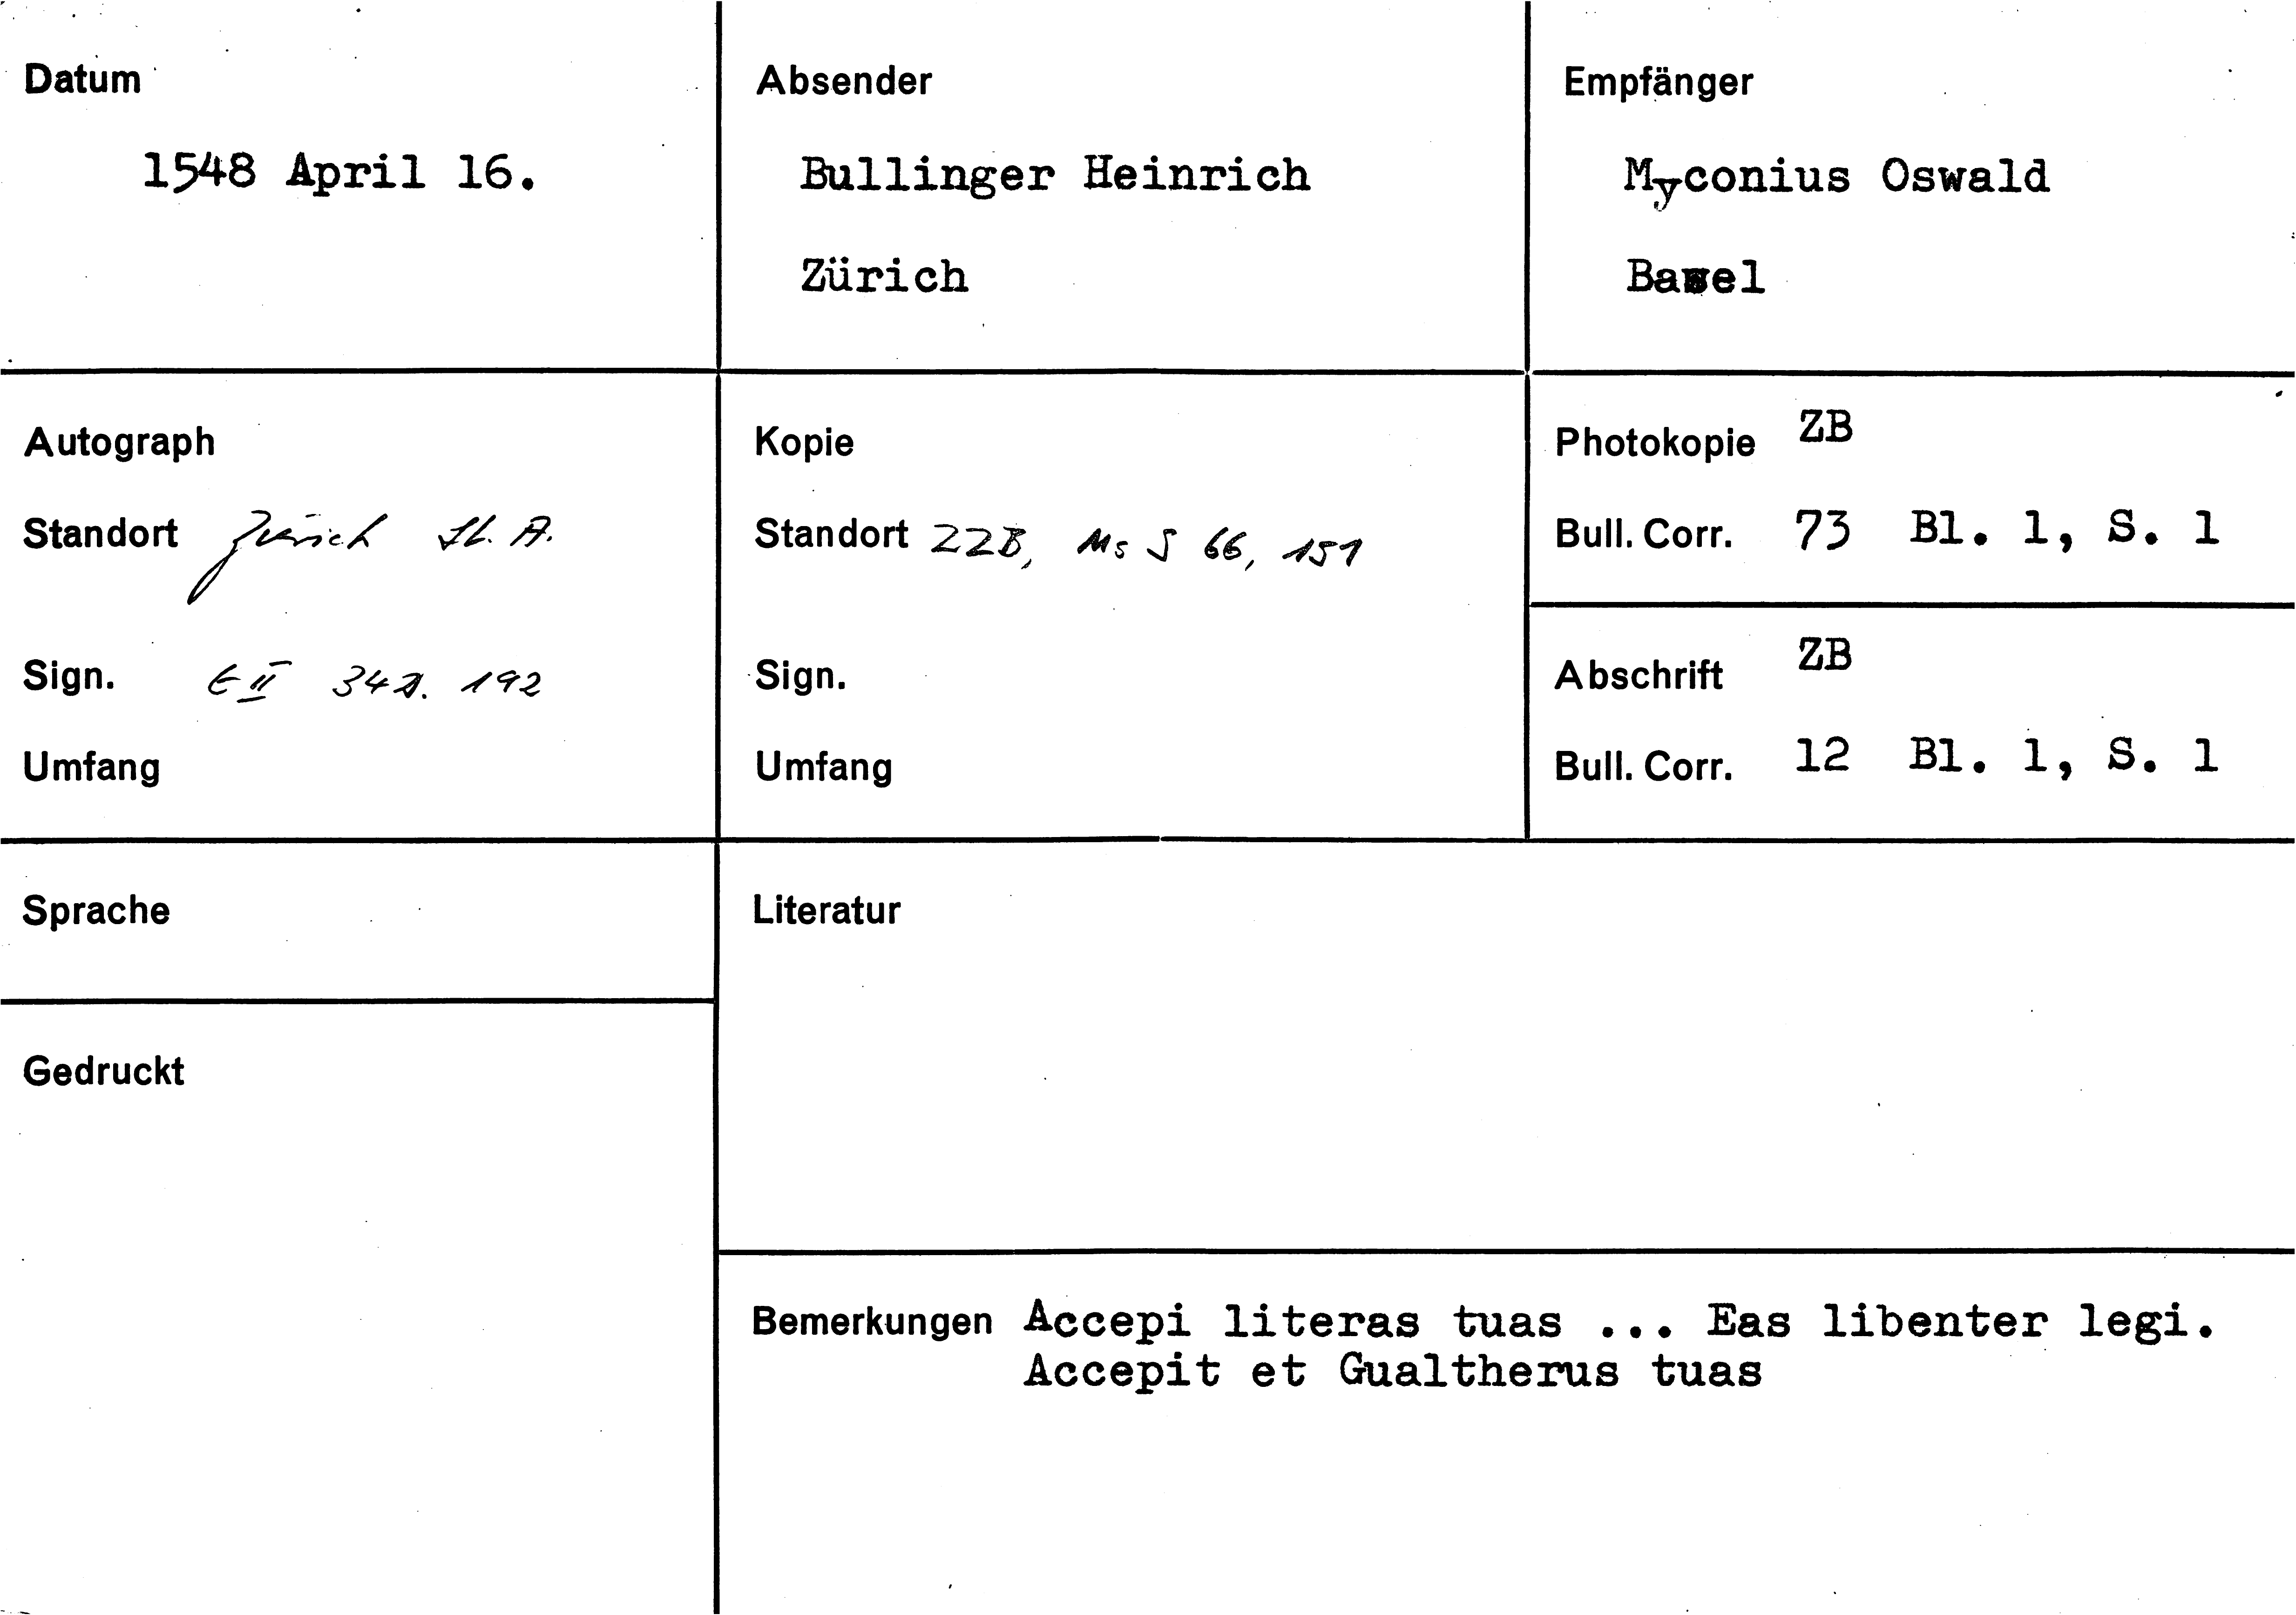 Datum
1548 April 16.
Absender
Bullinger Heinrich
Zürich
Empfänger
Myconius Oswald
Basel
Autograph
Standort Zürich St. A.
Sign. E II 342. 192
Umfang
Kopie
Standort ZZB, Ms S 66, 151
Sign.
Umfang
Photokopie ZB
Bull. Corr. 73 Bl. 1, S. 1
Abschrift ZB
Bull. Corr. 12 Bl. 1, S. 1
Sprache
Gedruckt
Literatur
Bemerkungen Accepi literas tuas ... Eas libenter legi.
Accepit et Gualtherus tuas